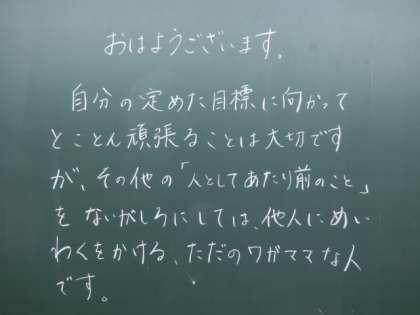 おはようございます。
自分の定めた目標に向かって
とことん頑張ることは大切です
が、その他の「人としてあたり前のこと」
をないがしろにしては、他人にめい
わくをかける、ただのワガママな人
です。